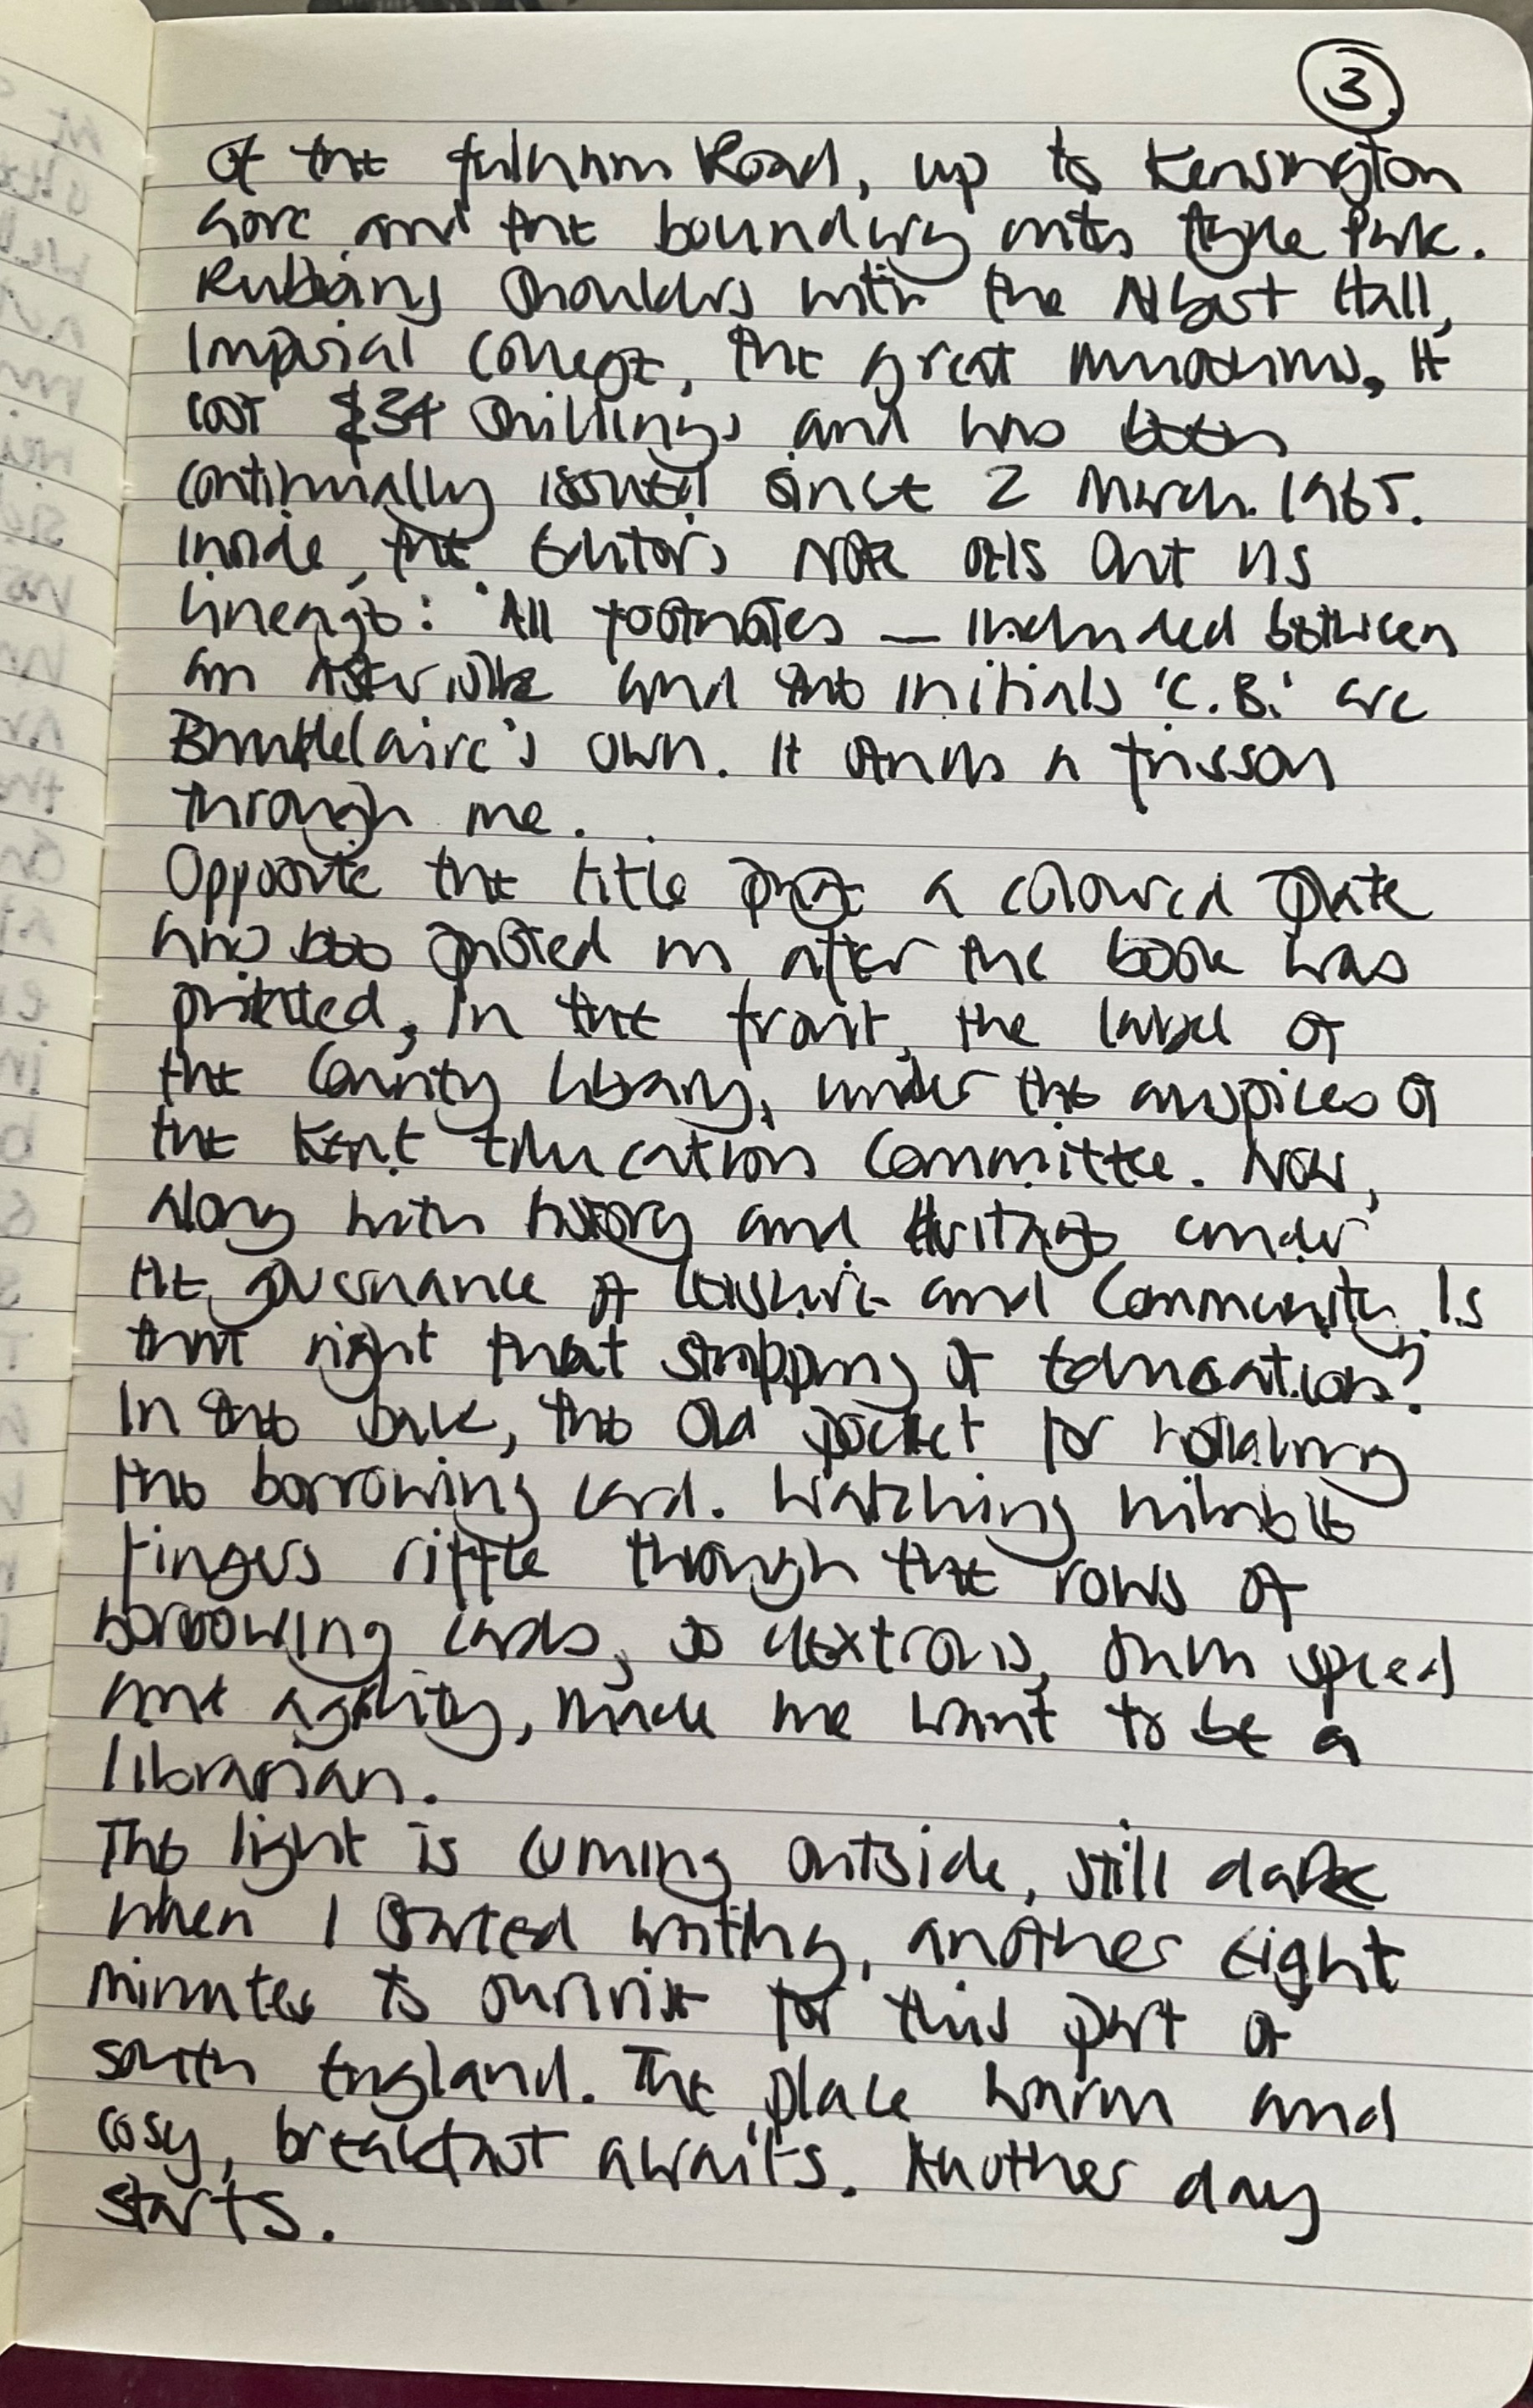 3.
of the fulham Road, up to Kensington
Gore and the boundary with Hyde Park.
Rubbing shoulders with the Albert Hall,
Imperial College, the great museums, it
cost 34 shillings and has been
continually issued since 2 March 1965.
Inside, the Editor's Note sets out its
lineage: 'All footnotes — included between
an asterisk and the initials 'C.B.' are
Baudelaire's own. It sends a frisson
through me.
Opposite the title page a coloured plate
has been pasted in after the book was
printed, in the front, the label of
the County Library, under the auspices of
the Kent Education Committee. Now,
along with history and Heritage under
the governance of Leisure and Community. Is
that right that stripping of education?
In the back, the old pocket for holding
the borrowing card. Watching nimble
fingers riffle through the rows of
borrowing cards, so dextrous, such speed
and agility, made me want to be a
librarian.
The light is coming outside, still dark
when I started writing, another eight
minutes to sunrise for this part of
south England. The place warm and
cosy, breakfast awaits. Another day
starts.